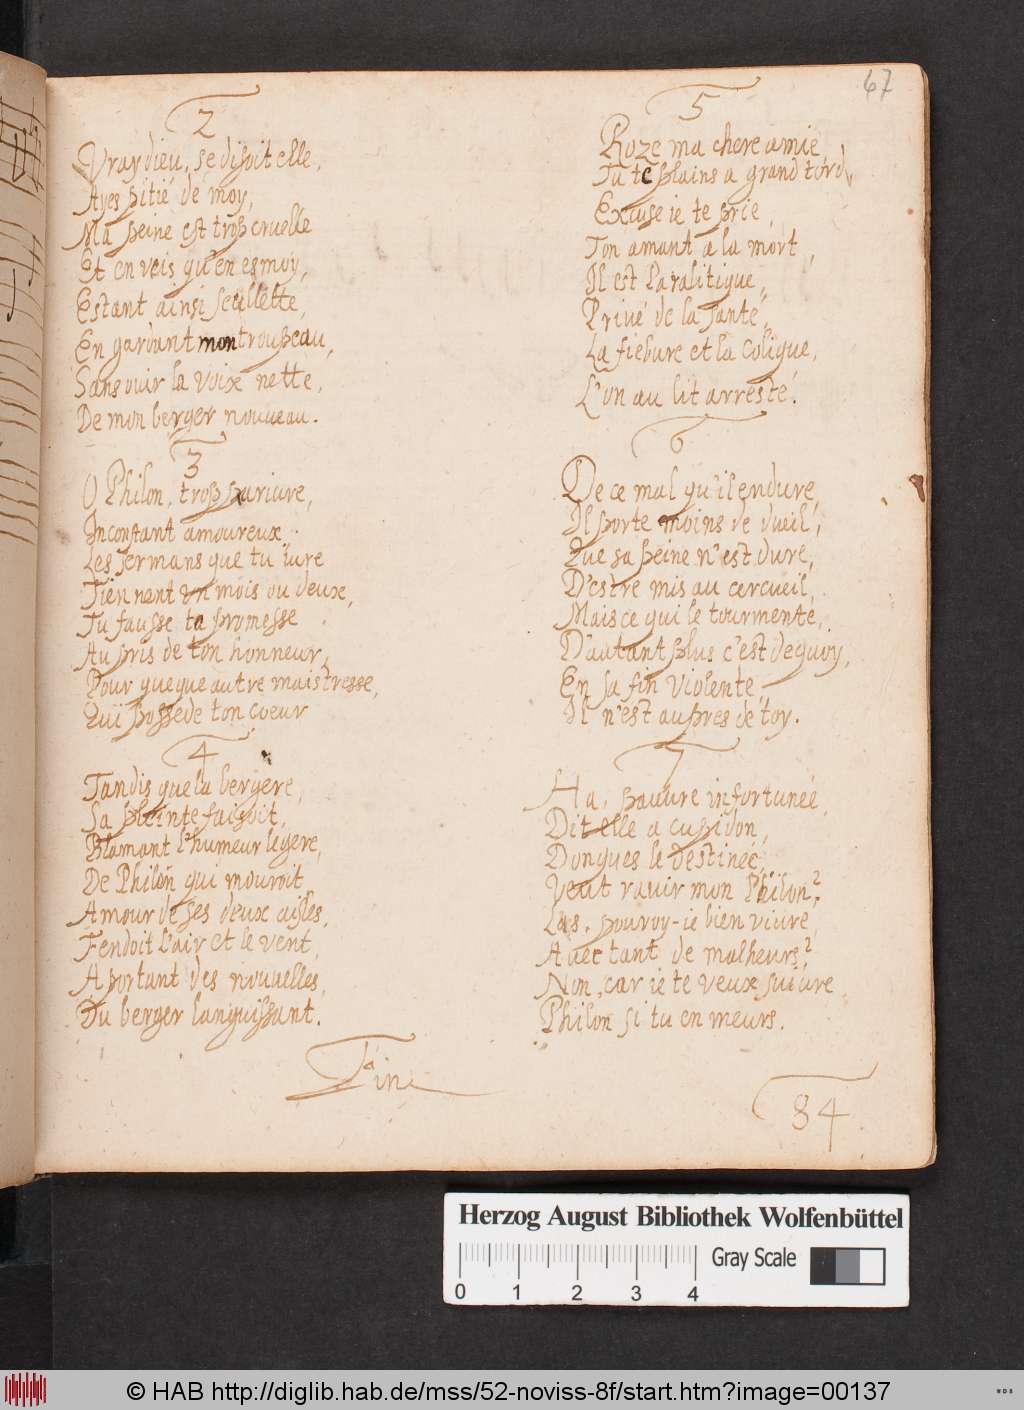 67
2
Vray dieu, se disoit elle,
Ayes pitié de moy,
Ma peine est trop cruelle
Et en veis qu'en esmoy,
Estant ainsi seullette,
En gardant mon troupeau,
Sans ouir la voix nette,
De mon berger nouueau.
3
O Philon, trop pariure,
Inconstant amoureux,
Les sermans que tu iure
Tiennent un mois ou deux,
Tu fausse ta promesse
Au pris de ton honneur,
Pour queque autre maistresse,
Qui possede ton coeur
4
Tandis que la bergere,
Sa pleinte faisoit,
Blamant l'humeur legere,
De Philon qui mouroit
Amour de ses deux aisles,
Fendoit l'air et le vent,
Aportant des nouuelles,
Du berger languissant.
5
Roze ma chere amie
Tu te plains a grand tord,
Excuse ie te prie,
Ton amant a la mort,
Il est Paralitique,
Priué de la santé,
La fiebure et la colique,
L'on au lit arresté.
6
De ce mal qu'il endure,
Il porte moins de dueil,
Que sa peine n'est dure,
D'estre mis au cercueil,
Mais ce qui le tourmente,
D'autant plus c'est dequoy,
En sa fin violente,
Il n'est aupres de toy.
7
Ha, pauure infortunée
Dit elle a cupidon,
Donques le destinée,
Veut rauir mon Philon?
Las, pouroy-ie bien viure,
Auec tant de malheurs?
Non, car ie te veux suiure
Philon si tu en meurs.
Fin
84
Herzog August Bibliothek Wolfenbüttel
Gray Scale
0 1 2 3 4
© HAB http://diglib.hab.de/mss/52-noviss-8f/start.htm?image=00137